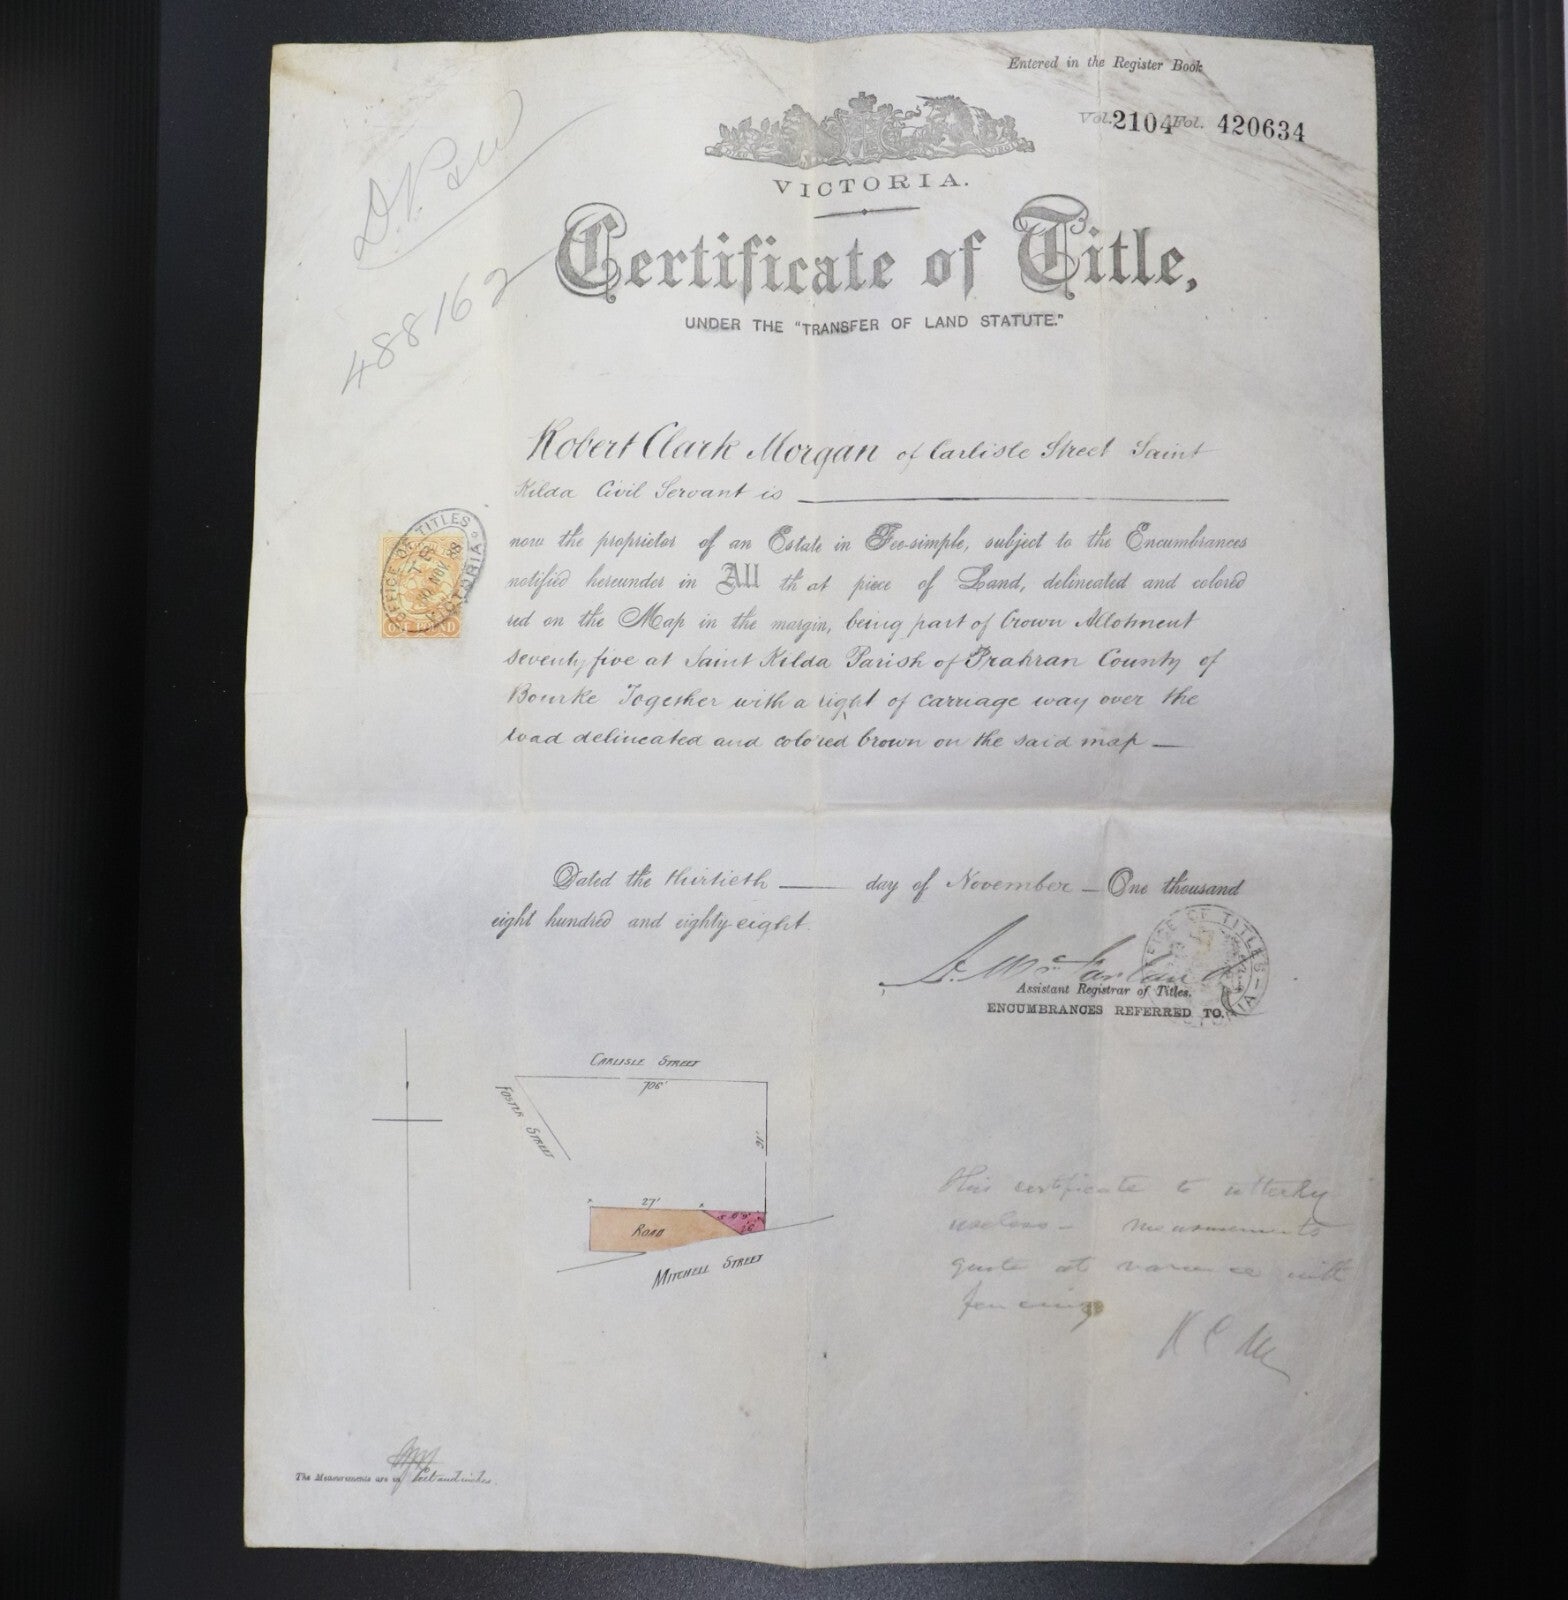 Entered in the Register Book
Vol. 2104 Fol. 420634
VICTORIA.
Certificate of Title,
UNDER THE "TRANSFER OF LAND STATUTE."
488162
Robert Clark Morgan of Carlisle Street Saint
Kilda Civil Servant is
now the proprietor of an Estate in Fee-simple, subject to the Encumbrances
notified hereunder in All that piece of Land, delineated and colored
red on the Map in the margin, being part of Crown Allotment
seventy five at Saint Kilda Parish of Prahran County of
Bourke Together with a right of carriage way over the
road delineated and colored brown on the said map
OFFICE OF TITLES
NOV 88
VICTORIA
ONE POUND
Dated the thirtieth day of November One thousand
eight hundred and eighty eight.
OFFICE OF TITLES
VICTORIA
Assistant Registrar of Titles.
ENCUMBRANCES REFERRED TO.
CARLISLE STREET
706'
FOSTER STREET
91'
27'
ROAD
MITCHELL STREET
This certificate is utterly
useless - measurements
quite at variance with
fencing
R C M
The Measurements are in feet and inches.